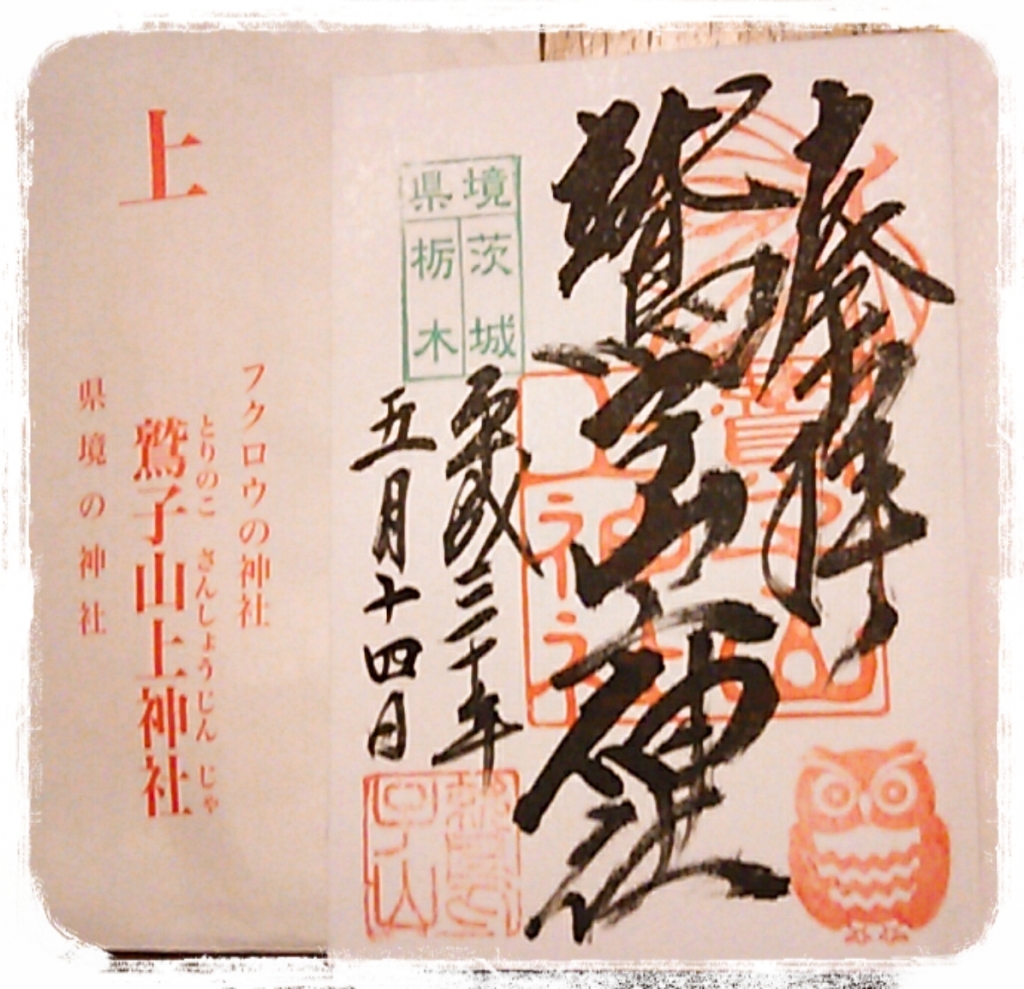 奉拝
鷲子山上神社
県境
茨城
栃木
平成三十年
五月十四日
上
フクロウの神社
とりのこ さんしょうじんじゃ
鷲子山上神社
県境の神社